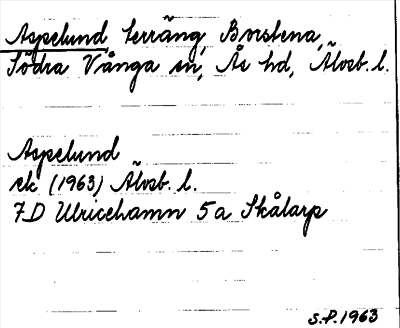 Aspelund terräng, Borstena,
Södra Vånga sn, Ås hd, Älvsb. l.
Aspelund
ek (1963) Älvsb. l.
7D Ulricehamn 5a Skålarp
S.P. 1963